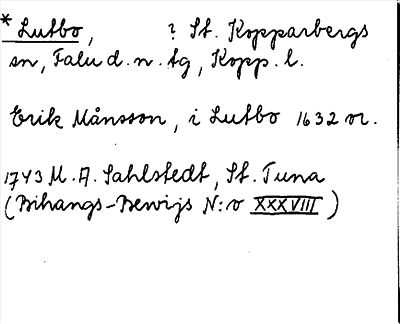 * Lutbo, ? St. Kopparbergs
sn, Falu d. n. tg, Kopp. l.
Erik Månsson, i Lutbo 1632 or.
1743 M. A. Sahlstedt, St. Tuna
(Bihangs-Bewijs N:o XXXVIII)